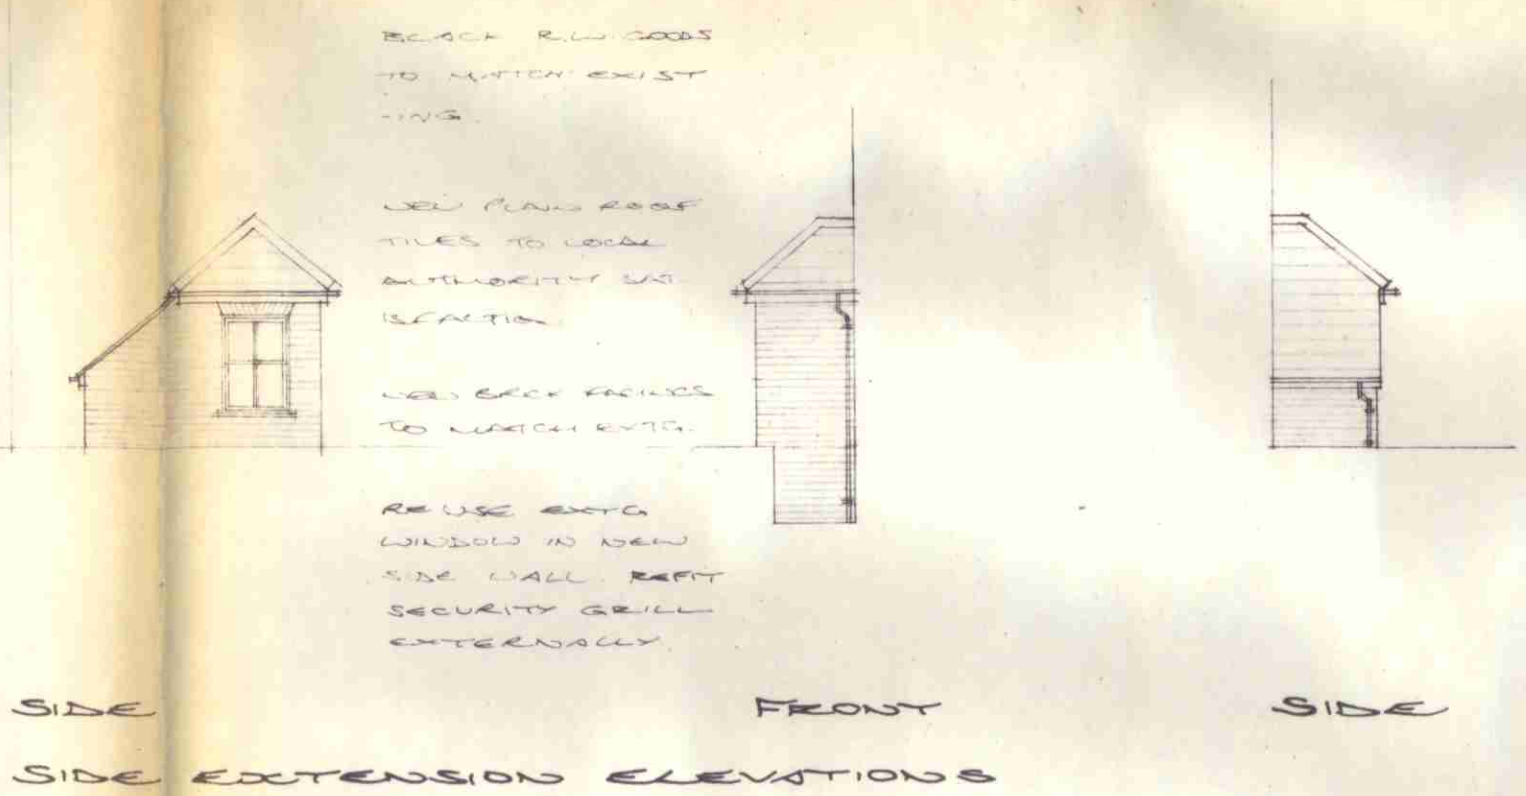 BLACK R.W. GOODS
TO MATCH EXIST
-ING.
NEW PLAIN ROOF
TILES TO LOCAL
AUTHORITY SAT
ISFACTION
NEW BRICK FACINGS
TO MATCH EXTG.
RE USE EXTG
WINDOW IN NEW
SIDE WALL. REFIT
SECURITY GRILL
EXTERNALLY.
SIDE
FRONT
SIDE
SIDE EXTENSION ELEVATIONS